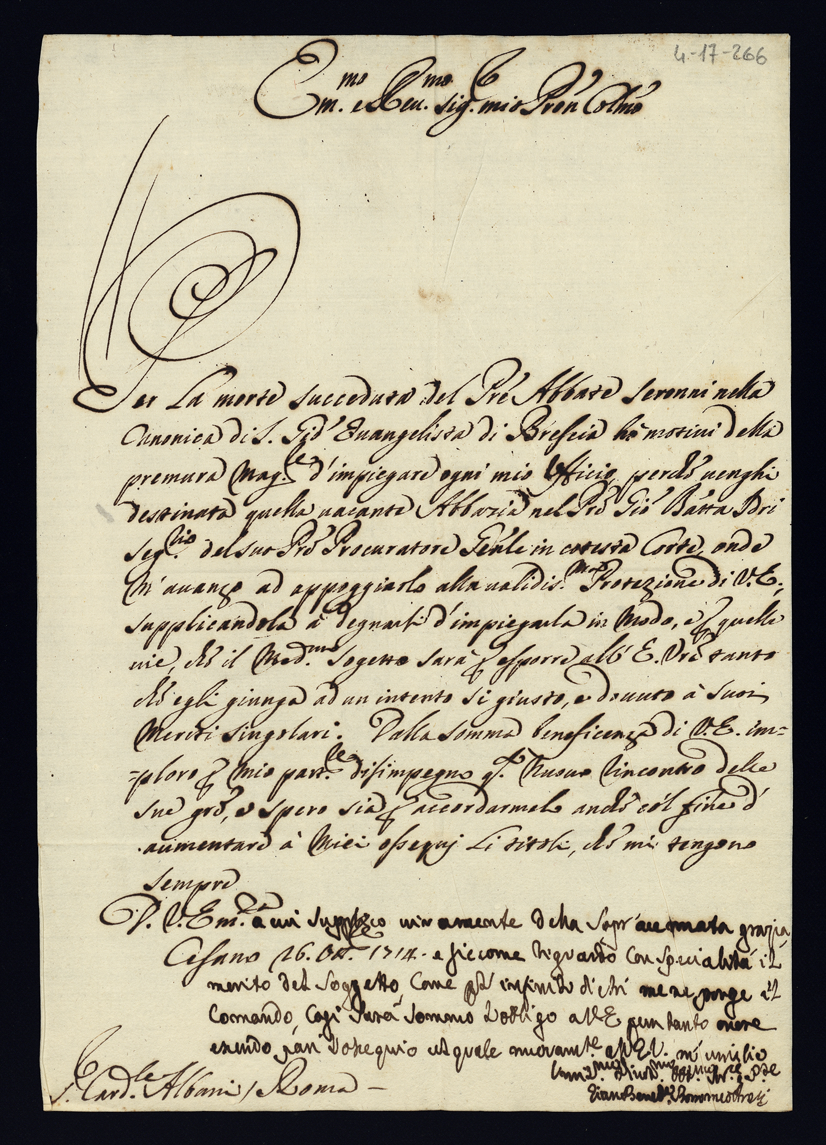 4-17-266
Em.mo e Reu.mo Sig.r mio Prōn Colmo
Per La morte succeduta del Pre Abbate Seronni nella
Canonica di S. Gio Euangelista di Brescia hò motivi della
premura Mag.le d'impiegare ogni mio Vfficio, perche uenghi
destinata quella uacante Abbazia nel Pre Gio Batta Idri
Seg.rio del suo Pre Procuratore Gen̄le in cotesta Corte, onde
M'auanzo ad appoggiarlo alla ualidis.ma Protezione di V.E.,
supplicandola à degnarsi d'impiegarla in Modo, e p quelle
uie, che il Med.mo Sogetto sarà p esporre all'E. Vra tanto
che egli giunga ad un intento si giusto, e douuto à Suoi
Meriti Singolari. Dalla somma beneficenza di V.E. im=
=ploro p Mio part.le disimpegno q.to Nuouo Rincontro delle
sue gre, e spero sia p accordarmelo anche col fine d'
aumentare à Miei ossequj Li titoli, che mi tengono
sempre
D. V. Em.za à cui supplico uiuamente della sopr'accennata grazia,
Cesano 26. Ott.e 1714. e siccome riguardo con specialità il
merito del Soggetto, come infinito di chi me ne porge il
Comando, Cosi Sarà Sommo L'obligo à V.E per tanto onore
L'ossequio col quale à V.E. m'umilio
S.r Card.le Albani / Roma
Borromeo Aresi